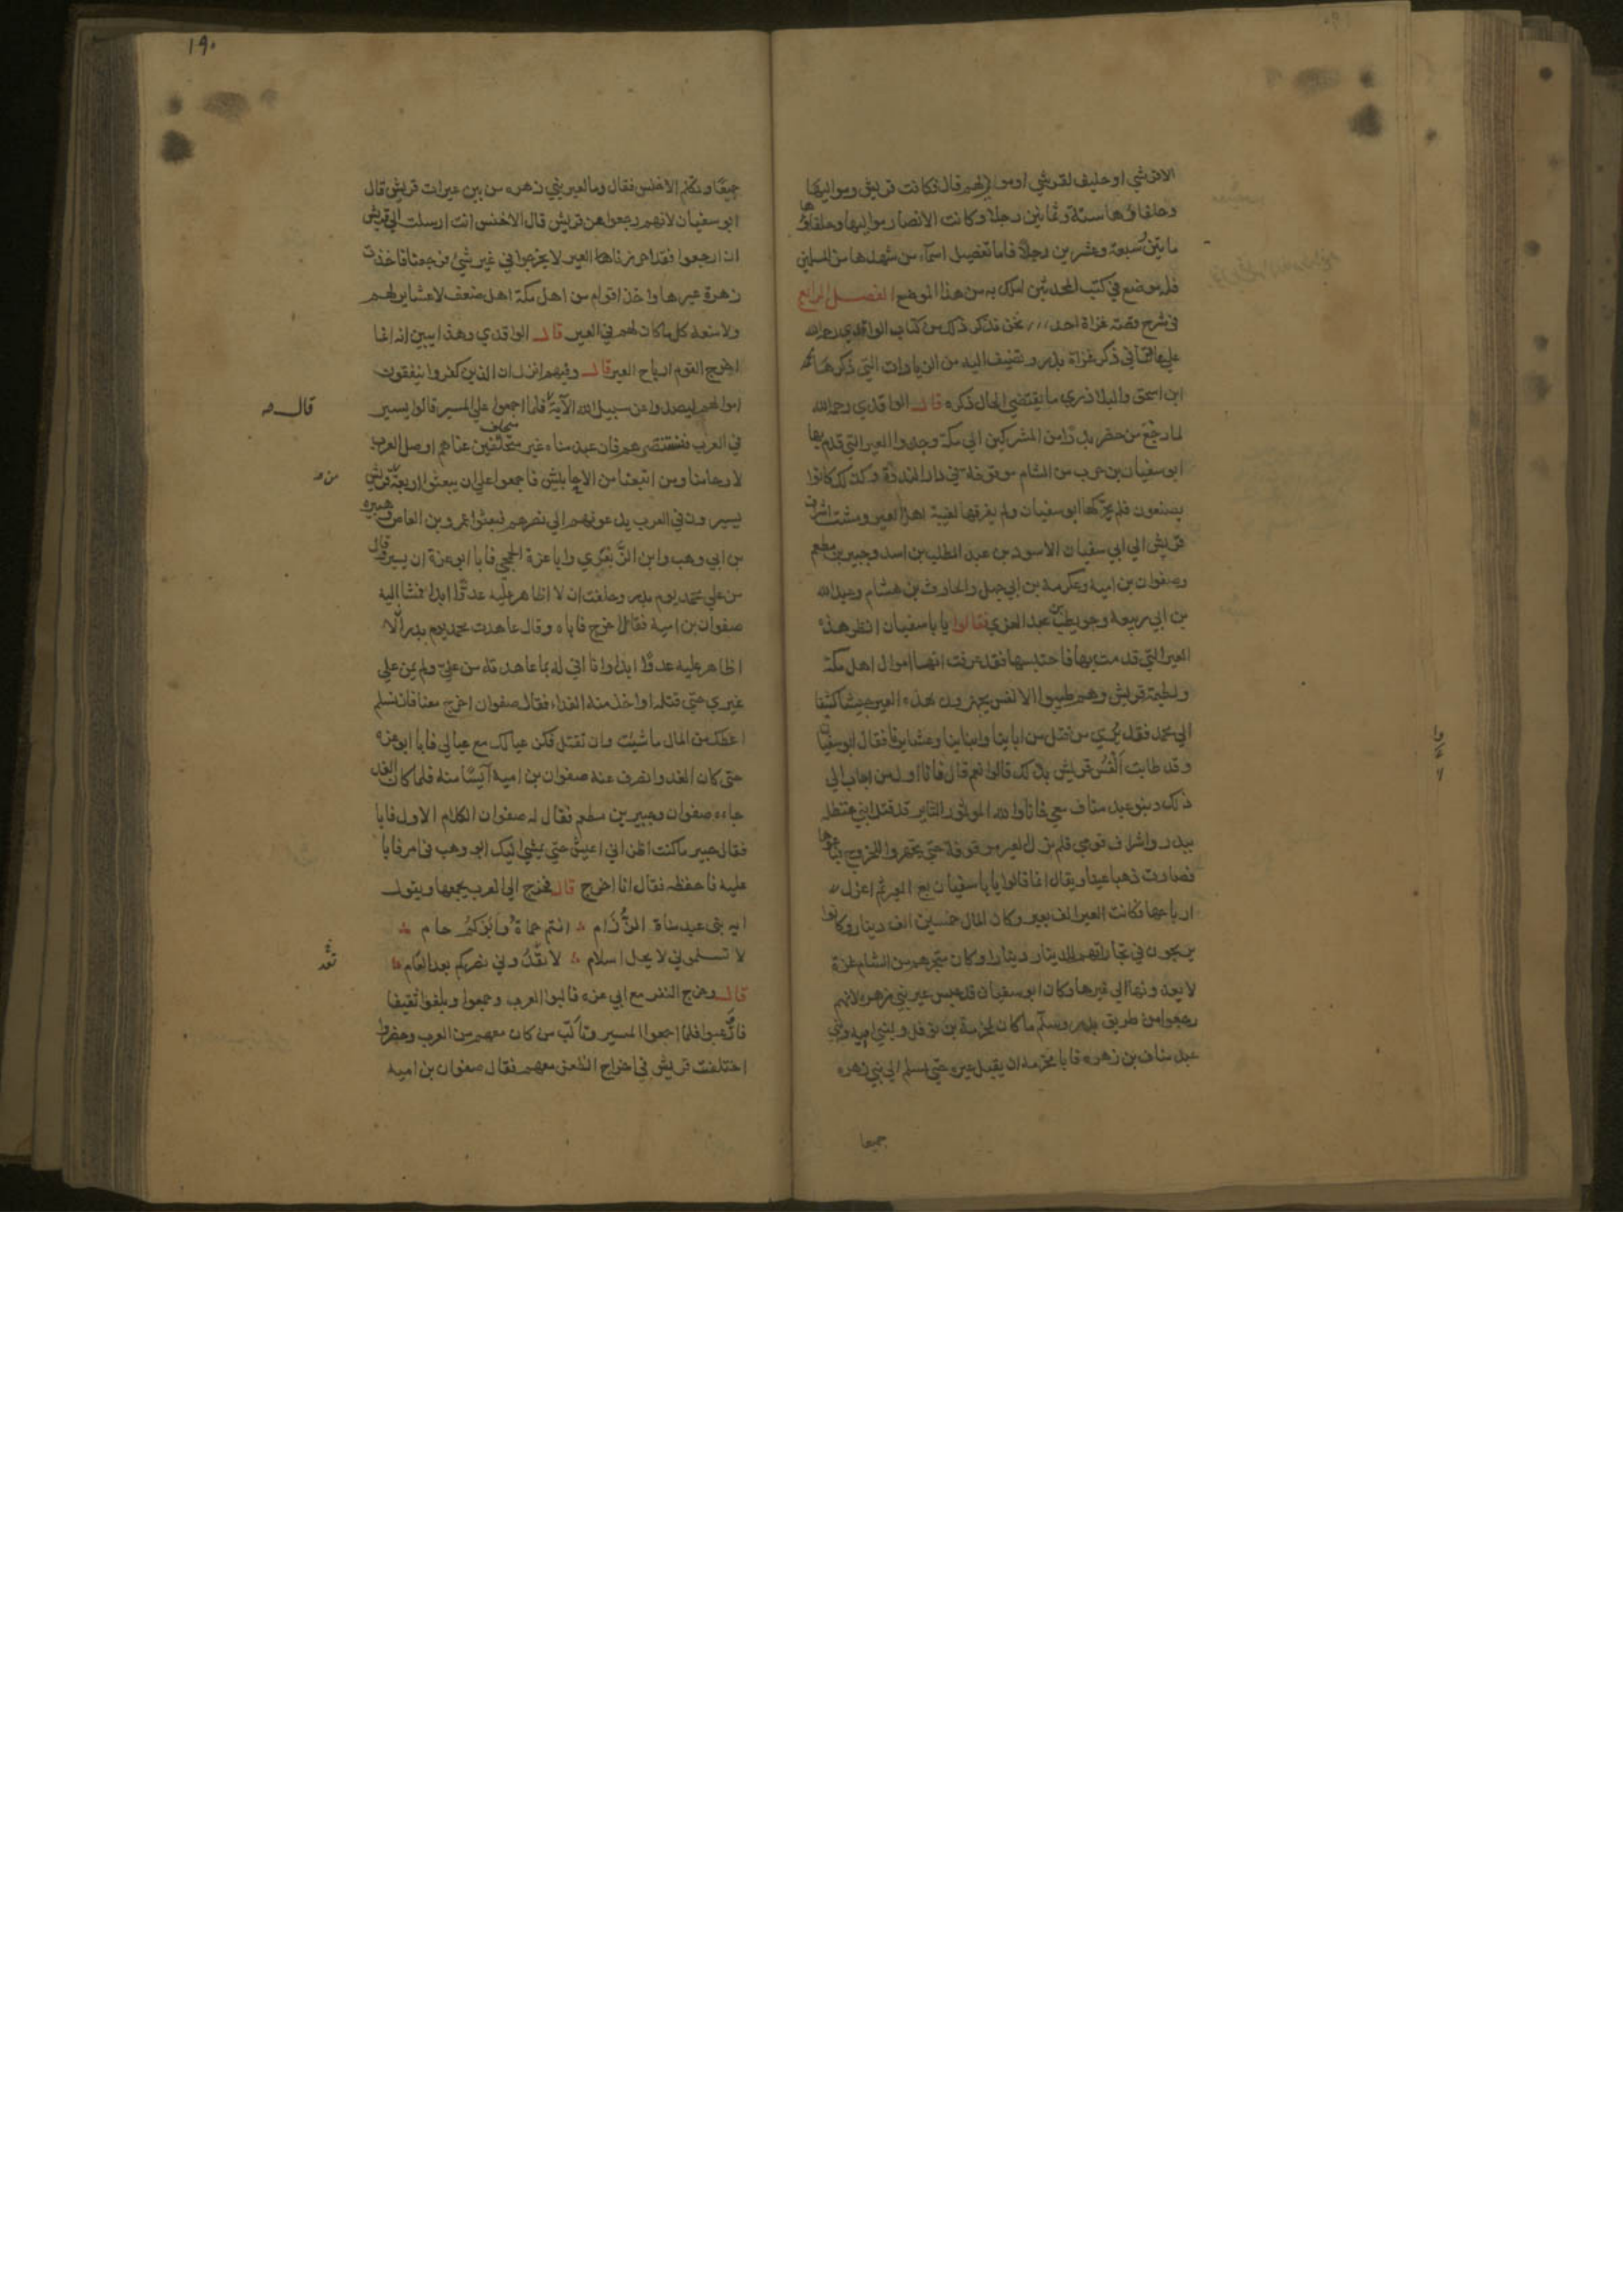 الا قرشي او حليف لقرشي او مولى لهم قال فكانت قريش ومواليها
وحلفاؤها ستة وثمانين رجلا وكانت الانصار ومواليها وحلفاؤها
مايتين وسبعة وعشرين رجلا فاما تفصيل اسماء من شهدها من المسلمين
فله موضع في كتب المحدثين املك به من هذا الموضع الفصل الرابع
في شرح قصة غزاة احد ونحن نذكر ذلك من كتاب الواقدي رحمه الله
علي عادتنا في ذكر غزاة بدر ونضيف اليه من الزيادات التي ذكرها
ابن اسحق والبلاذري ما يقتضي الحال ذكره قال الواقدي رحمه الله
لما رجع من حضر بدرا من المشركين الي مكة وجدوا العير التي قدم بها
ابو سفيان بن حرب من الشام موقوفة في دار الندوة وكذلك كانوا
يصنعون فلم يحركها ابو سفيان ولم يفرقها لغيبة اهل العير ومشت اشراف
قريش الي ابي سفيان الاسود بن عبد المطلب بن اسد وجبير بن مطعم
وصفوان بن امية وعكرمة بن ابي جهل والحارث بن هشام وعبد الله
بن ابي ربيعة وحويطب بن عبد العزي فقالوا يا با سفيان انظر هذه
العير التي قدمت بها فاحتبسها فقد عرفت انها اموال اهل مكة
ولطيمة قريش وهم طيبوا الانفس يجهزون بهذه العير جيشا كثيفا
الي محمد فقد تري من قتل من اباينا وابناينا وعشايرنا فقال ابو سفيان
وقد طابت انفس قريش بذلك قالوا نعم قال فانا اول من اجاب الي
ذلك وبنو عبد مناف معي فانا والله الموتور الثاير قد قتل ابني حنظلة
ببدر واشراف قومي فلم تزل العير موقوفة حتي تجهزوا للخروج فباعوها
فصارت ذهبا عينا ويقال انما قالوا يا با سفيان بع العير ثم اعزل
ارباحها فكانت العير الف بعير وكان المال خمسين الف دينار وكانوا
يربحون في تجاراتهم للدينار دينارا وكان متجرهم من الشام غزة
لا يعدونها الي غيرها وكان ابو سفيان قد حبس عير بني زهرة لانهم
رجعوا من طريق بدر وسلم ما كان لمخرمة بن نوفل ولبني ابيه وبني
عبد مناف بن زهرة فابا مخرمة ان يقبل عيره حتي يسلم الي بني زهرة
جميعا
١٩٠
جميعا وتكلم الاخنس فقال وما لعير بني زهرة من بين عيرات قريش قال
ابو سفيان لانهم رجعوا عن قريش قال الاخنس انت ارسلت الي قريش
ان ارجعوا فقد احرزنا العير لا تخرجوا في غير شئ فرجعنا فاخذت
زهرة عيرها واخذ اقوام من اهل مكة اهل ضعف لا عشاير لهم
ولا منعة كل ما كان لهم في العير قال الواقدي وهذا يبين انه انما
اخرج القوم ارباح العير قال وفيهم انزل ان الذين كفروا ينفقون
اموالهم ليصدوا عن سبيل الله الآية فلما اجمعوا علي المسير قالوا نسير
قال صه
في العرب فنستنصرهم فان عبد مناة غير متخلفين عنا هم اوصل العرب
لارحامنا ومن اتبعنا من الاحابيش فاجمعوا علي ان يبعثوا اربعة
من صه
يسيرون في العرب يدعونهم الي نصرهم فبعثوا عمرو بن العاص وهبيرة
بن ابي وهب وابن الزبعري وابا عزة الجمحي فابا ابو عزة ان يسير وقال
من علي محمد يوم بدر وحلفت ان لا اظاهر عليه عدوا ابدا فمشا اليه
صفوان بن امية فقال اخرج فاباه وقال عاهدت محمد يوم بدر ألا
اظاهر عليه عدوا ابدا وانا افي له بما عاهدته من علي ولم يمن علي
غيري حتي قتله او اخذ منه الفداء فقال صفوان اخرج معنا فان تسلم
اعطك من المال ما شيت وان تقتل فكن عيالك مع عيالي فابا ابو عزة
حتي كان الغد وانصرف عنه صفوان بن امية آيسا منه فلما كان الغد
جاءه صفوان وجبير بن مطعم فقال له صفوان الكلام الاول فابا
فقال جبير ما كنت اظن اني اعيش حتي يمشي اليك ابو وهب في امر فابا
عليه فاحفظه فقال انا اخرج قال فخرج الي العرب يجمعها ويقول
ايه بني عبد مناة الرزام انتم حماة وابوكم حام
لا تسلموني لا يحل اسلام لا تعدوني نصركم بعد العام
قال وخرج النفر مع ابي عزة فالبوا العرب وجمعوا وبلغوا ثقيفا
فاوعبوا فلما اجمعوا المسير وتألب من كان معهم من العرب وحضروا
اختلفت قريش في اخراج الظعن معهم فقال صفوان بن امية